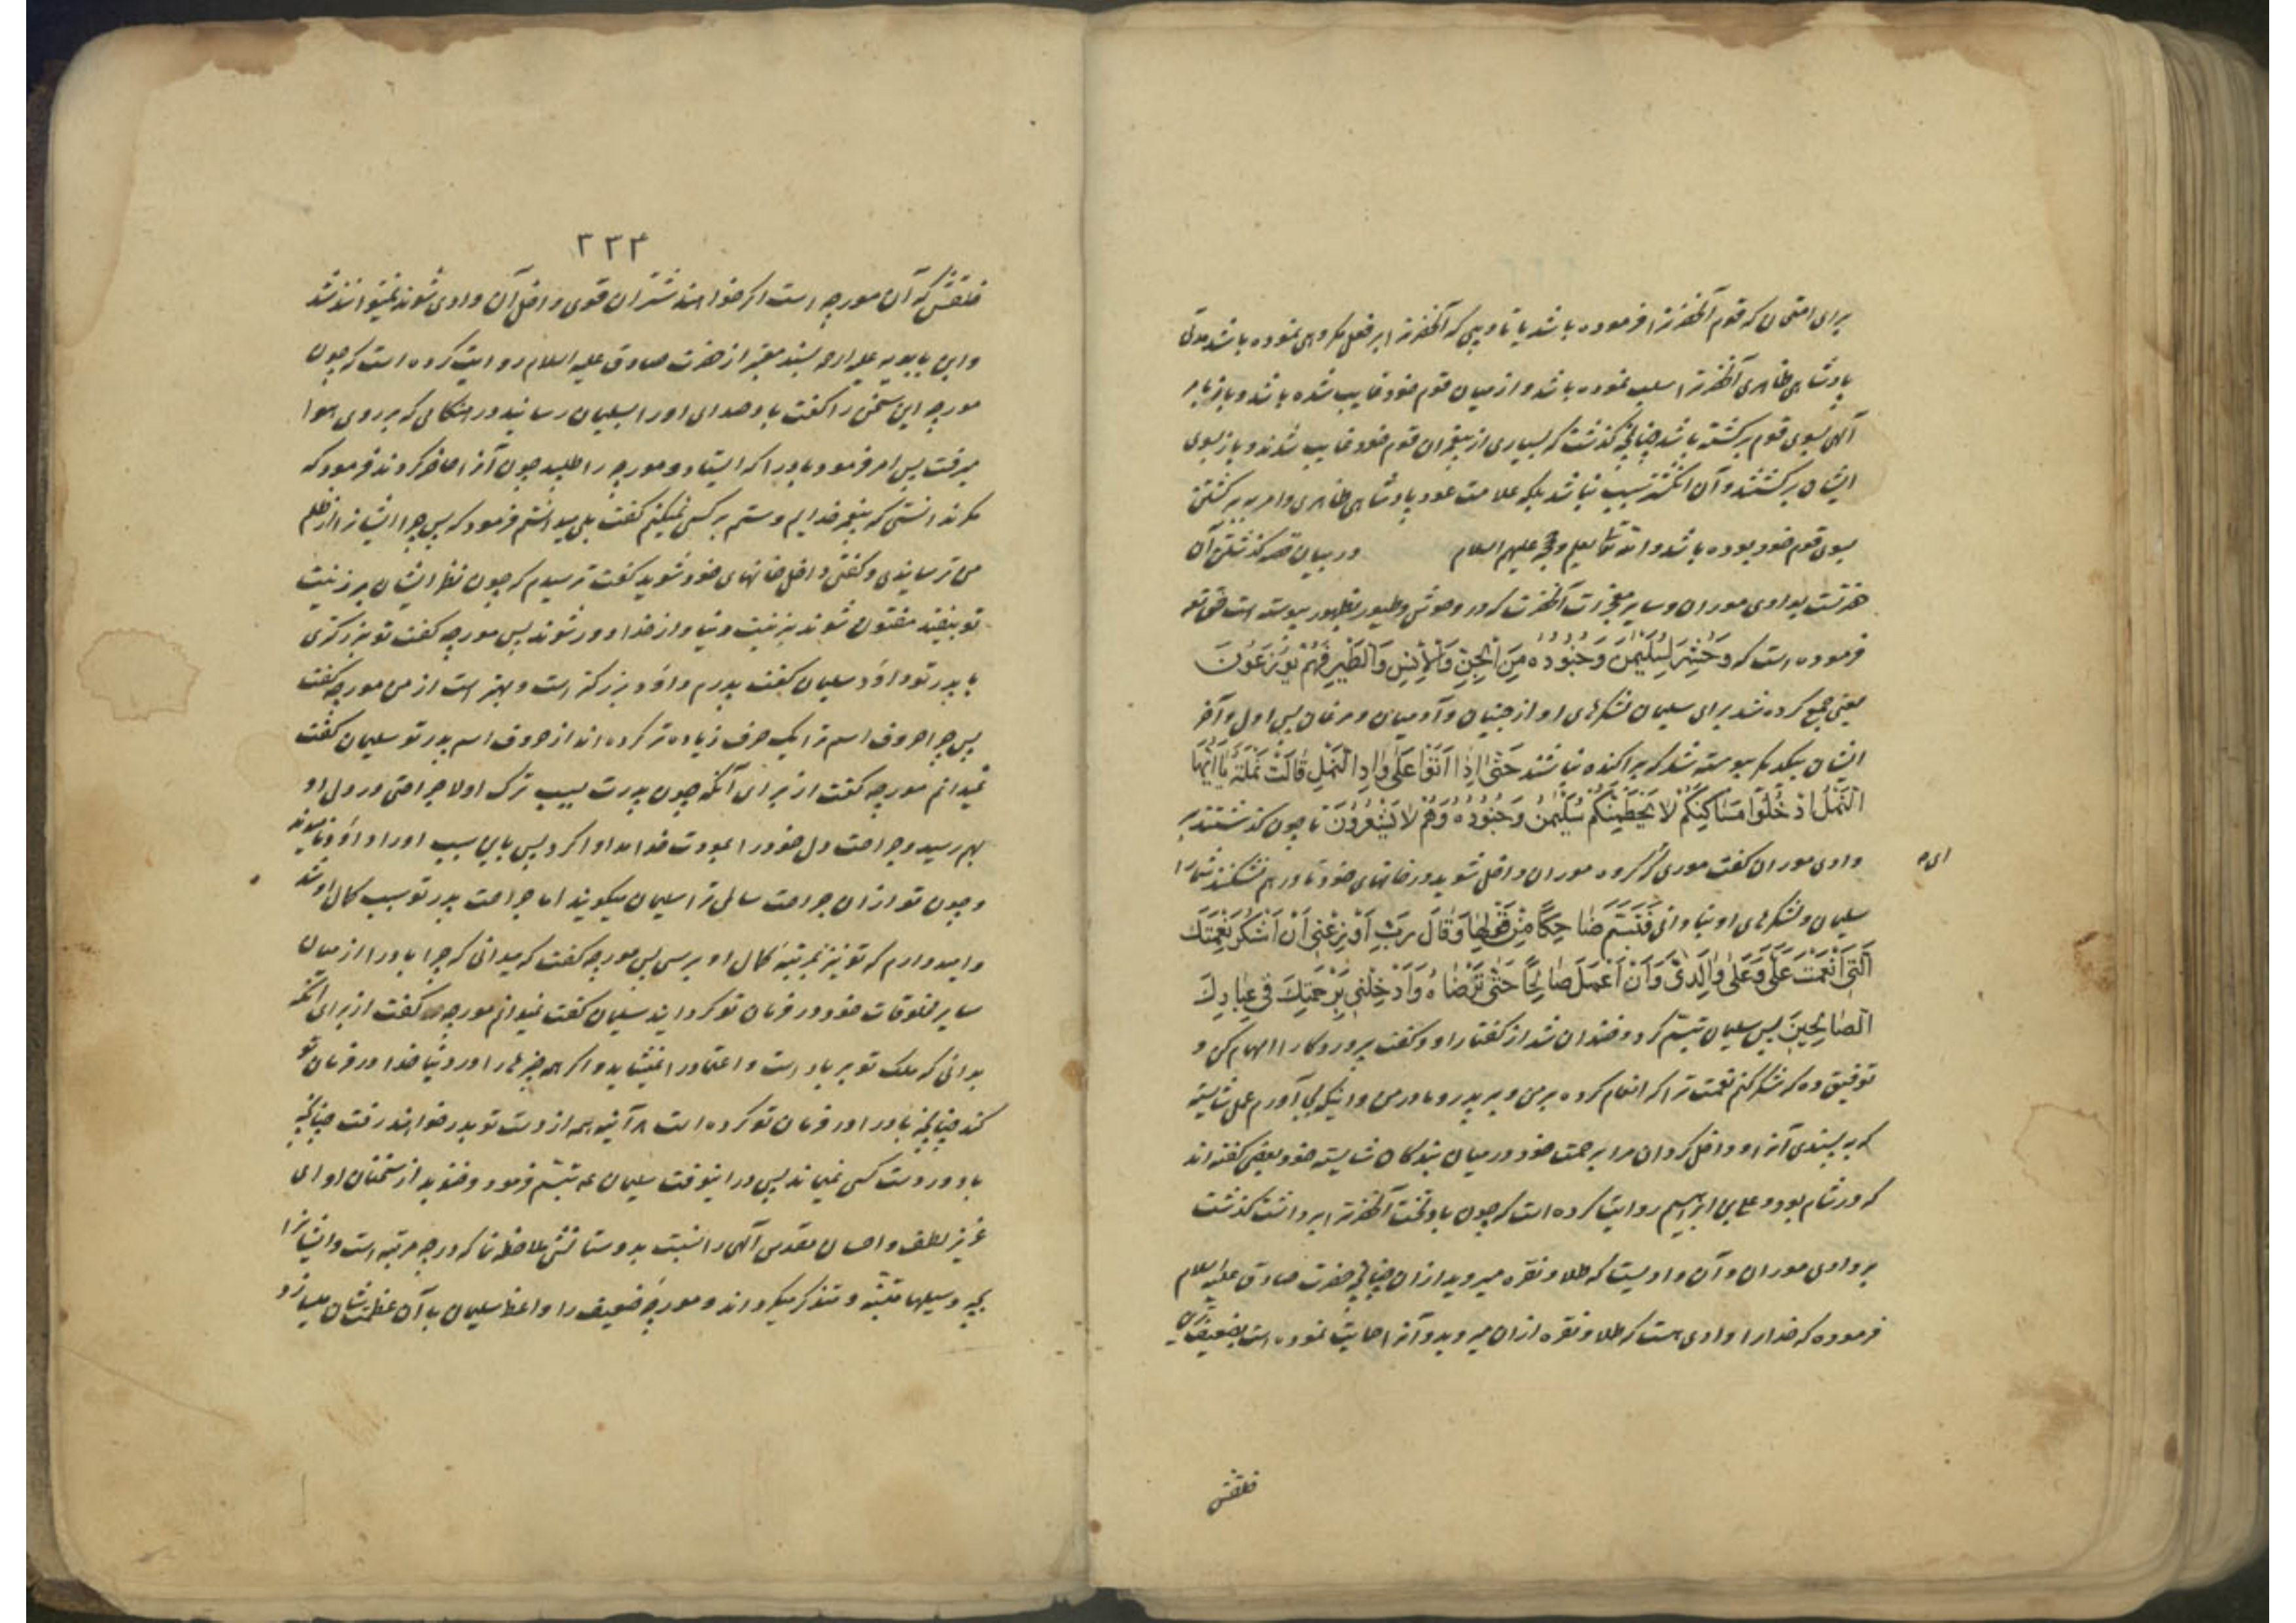 برای امتحان که قوم آنحضرترا فرموده باشد یا تادیبی که آنحضرترا بر فعل مکروهی نموده باشد مدتی
پادشاهی ظاهری آنحضرترا سلب نموده باشد و از میان قوم خود غایب شده باشد و باز بامر
آلهی بسوی قوم برگشته باشد چنانچه گذشت که بسیاری از پیغمبران قوم خود غایب شدند و باز بسوی
ایشان برگشتند و آن انگشتر سبب نباشد بلکه علامت عود پادشاهی ظاهری و امر به برگشتن
بسوی قوم خود بوده باشد والله تعالی یعلم و حججه علیهم السلام در بیان قصه گذشتن آن
حضرتست بوادی موران و سایر معجزات آنحضرت که در وحوش و طیور بظهور پیوسته است حق تعه
فرموده است که وَحُشِرَ لِسُلَیْمٰنَ وَجُنُودُهُ مِنَ الْجِنِّ وَالْاِنْسِ وَالطَّیْرِ فَهُمْ یُوزَعُونَ
یعنی جمع کرده شد برای سلیمان لشکرهای او از جنیان و آدمیان و مرغان پس اول و آخر
ایشان بیکدیگر پیوسته شد که پراکنده نباشند حَتّٰی اِذٰا اَتَوْا عَلٰی وٰادِ النَّمْلِ قٰالَتْ نَمْلَةٌ یٰا اَیُّهَا
النَّمْلُ ادْخُلُوا مَسٰاکِنَکُمْ لٰا یَحْطِمَنَّکُمْ سُلَیْمٰنُ وَجُنُودُهُ وَهُمْ لٰا یَشْعُرُونَ تا چون گذشتند بر
وادی موران گفت موری که گروه موران داخل شوید در خانهای خود تا درهم نشکنند شما را
ای ه
سلیمان و لشکرهای او بنادانی فَتَبَسَّمَ ضٰاحِکًا مِنْ قَوْلِهٰا وَقٰالَ رَبِّ اَوْزِعْنِی اَنْ اَشْکُرَ نِعْمَتَكَ
الَّتِی اَنْعَمْتَ عَلَیَّ وَعَلٰی وٰالِدَیَّ وَاَنْ اَعْمَلَ صٰالِحًا حَتّٰی تَرْضٰاهُ وَاَدْخِلْنِی بِرَحْمَتِكَ فِی عِبٰادِكَ
الصّٰالِحِینَ پس سلیمان تبسّم کرد و خندان شد از گفتار او و گفت پروردگارا الهام کن و
توفیق ده که شکر کنم نعمت ترا که انعام کرده بر من و بر پدر و مادر من و اینکه بجا آورم عمل شایسته
که به پسندی آنرا و داخل گردان مرا برحمت خود در میان بندگان شایسته خود بعضی گفته اند
که در شام بود و علی بن ابراهیم روایت کرده است که چون باد تخت آنحضرترا برداشت گذشت
بر وادی موران و آن وادیست که طلا و نقره میروید از ان چنانچه حضرت صادق علیه السلام
فرموده که خدا را وادی هست که طلا و نقره از ان میروید و آنرا حمایت نموده است بضعیف ترین
خلقش
۳۳۴
خلقش که آن مورچه است اگر خواهند شتران قوی داخل آن وادی شوند نمیتوانند شد
و ابن بابویه علیه الرحمه بسند معتبر از حضرت صادق علیه السلام روایت کرده است که چون
مورچه این سخن را گفت باد صدای او را بسلیمان رسانید در هنگامی که بر روی هوا
میرفت پس امر فرمود باد را که ایستاد و مورچه را طلبید چون آنرا حاضر کردند فرمود که
مگر ندانستی که پیغمبر خدایم و ستم بر کسی نمیکنم گفت بلی میدانستم فرمود که پس چرا ایشانرا از ظلم
من ترسانیدی و گفتی داخل خانهای خود شوید گفت ترسیدم که چون نظر ایشان بر زینت
تو بیفتد مفتون شوند بزینت دنیا و از خدا دور شوند پس مورچه گفت تو بزرگتری
یا پدر تو داود سلیمان گفت پدرم داود بزرگتر است و بهتر است از من مورچه گفت
پس چرا حروف اسم ترا یک حرف زیاده تر کرده اند از حروف اسم پدر تو سلیمان گفت
نمیدانم مورچه گفت از برای آنکه چون پدرت بسبب ترک اولا جراحتی در دل او
بهم رسید و جراحت دل خود را بمودت خدا مداوا کرد پس باین سبب او را داود نامیدند
و چون تو از ان جراحت سالمی ترا سلیمان میگویند اما جراحت پدر تو سبب کمال او شد
و امیدوارم که تو نیز بمرتبه کمال او برسی پس مورچه گفت که میدانی که چرا باد را از میان
سایر مخلوقات خود در فرمان تو گردانید سلیمان گفت نمیدانم مورچه گفت از برای آنکه
بدانی که ملک تو بر باد است و اعتماد را نمیشاید و اگر همه چیزها را در دنیا خدا در فرمان تو
کند چنانچه باد را در فرمان تو کرده است هر آینه همه از دست تو بدر خواهند رفت چنانچه
باد در دست کسی نمیماند پس در اینوقت سلیمان عه تبسّم فرمود و خندید از سخنان او ای
عزیز لطف و احسان مقدس آلهی را نسبت بدوستانش ملاحظه نما که در چه مرتبه است و ایشانرا
بچه وسیلها متنبّه و متذکر میگرداند و مورچه ضعیف را واعظ سلیمان با آن عظمت شان میسازد